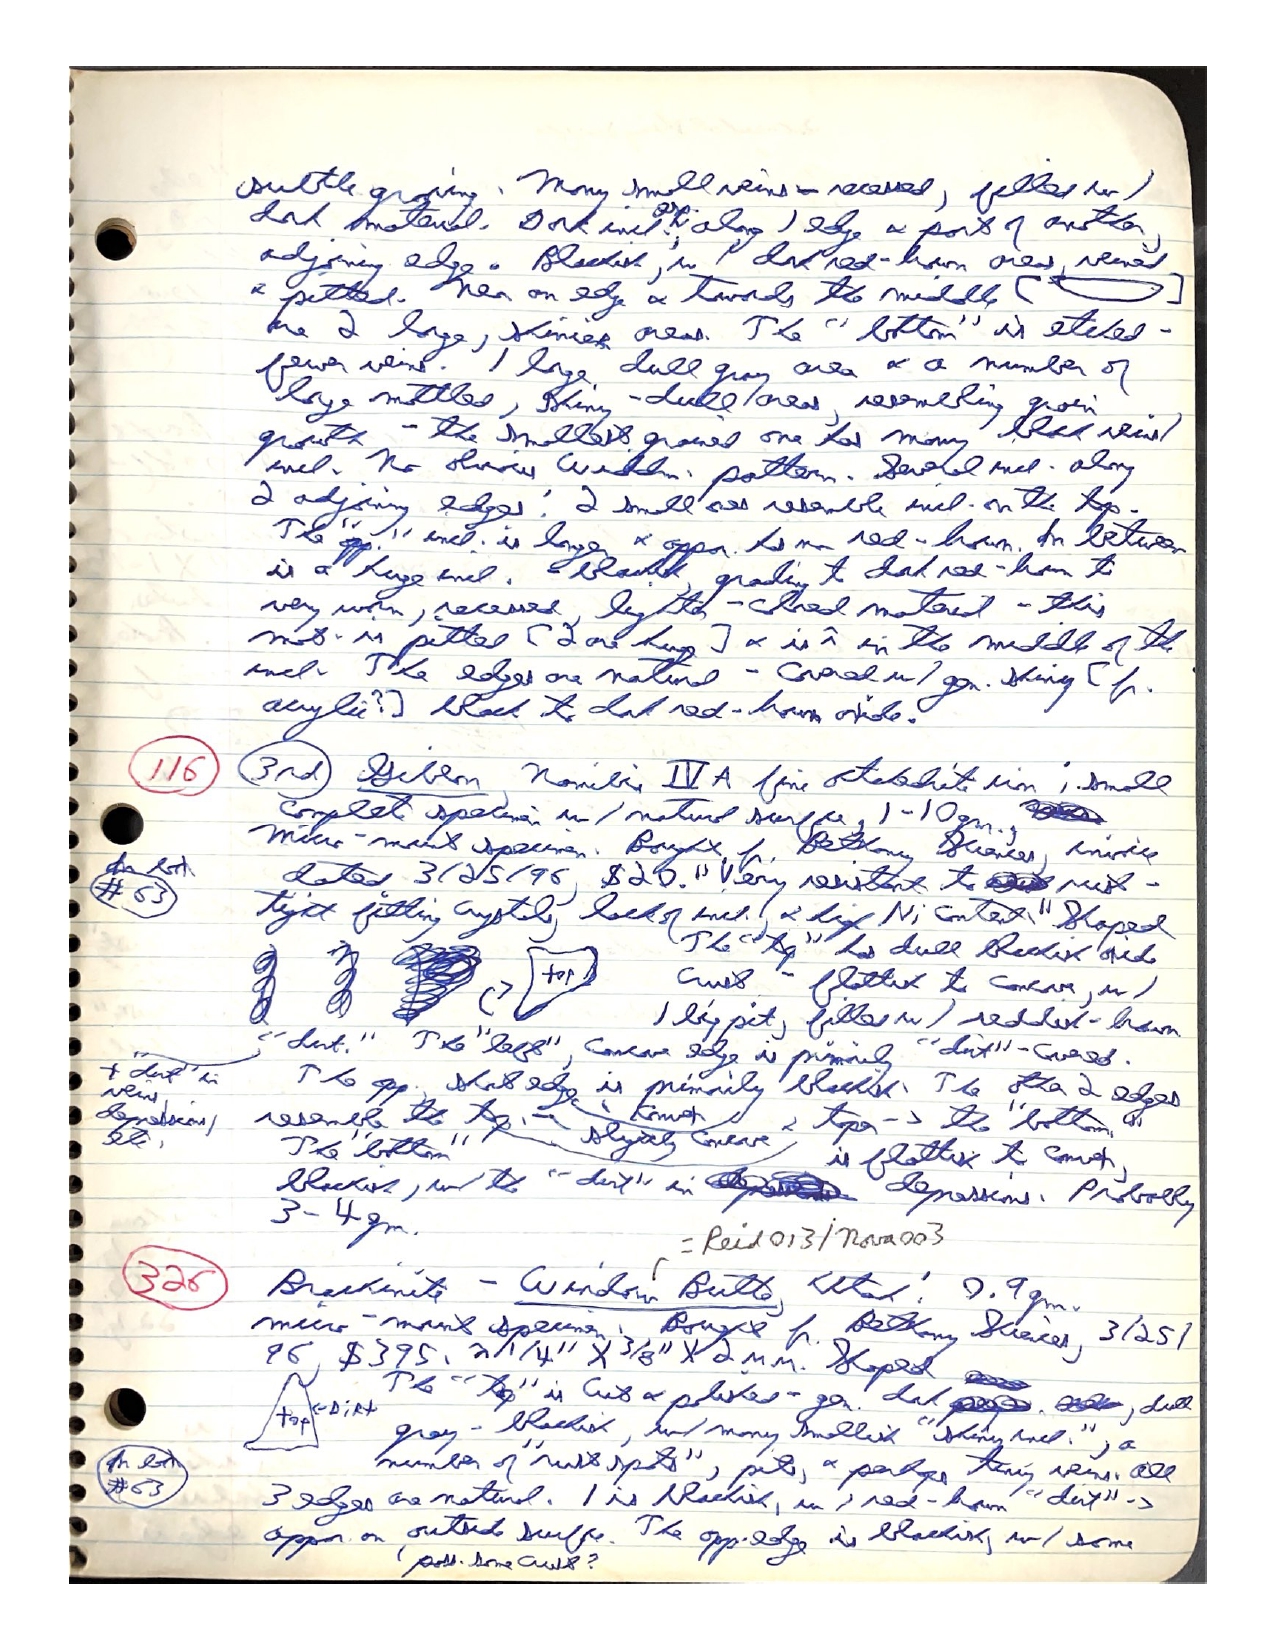 subtle graining. Many small veins - recessed, filled w/
dark material. Dark incl. along 1 edge & part of another,
adjoining edge. Blackish, w/ dark red-brown areas, veined
& pitted. Near an edge & towards the middle [ ]
are 2 large, shinier areas. The "bottom" is etched -
fewer veins. 1 large dull gray area & a number of
large mottled, shiny-dull areas, resembling grain
growth - the smallest grained one has many black veins/
incl. No obvious Widm. pattern. Several incl. along
2 adjoining edges: 2 small ones resemble incl. on the top.
The "opp." incl. is larger & appar. has no red-brown. In between
is a huge incl. - blackish, grading to dark red-brown to
very worn, recessed, lighter-colored material - this
mat. is pitted [2 are huge] & is in the middle of the
incl. The edges are natural - covered w/ gen. shiny [fr.
acrylic?] black to dark red-brown oxide.
116 3rd Gibeon, Namibia IV A fine octahedrite iron; small
complete specimen w/ natural surface, 1-10 gm.,
micro-mount specimen. Bought fr. Bethany Sciences, invoice
In lot #63
dated 3/25/96, $20. "Very resistant to rust -
tight fitting crystals, lack of incl., & high Ni content." Shaped
top
The "top" has dull blackish oxide
crust - flattish to concave, w/
1 big pit, filled w/ reddish-brown
"dirt." The "left", concave edge is primarily "dirt"-covered.
+ "dirt" in veins, depressions, etc.
The opp. short edge is primarily blackish. The other 2 edges
resemble the top - 1 convex
1 slightly concave & taper -> the "bottom."
The "bottom" is flattish to convex,
blackish, w/ the "dirt" in depressions. Probably
3-4 gm.
= Reid 013/Nova 003
326 Brachinite - Window Butte, Utah! 0.9 gm.
micro-mount specimen. Bought fr. Bethany Sciences, 3/25/
96, $395. ≈ 1/4" X 3/8" X 2 mm. Shaped
top <- Dirt
The "top" is cut & polished - gen. dark, dull
gray - blackish, w/ many smallish "shiny incl.", a
number of "rust spots", pits, & perhaps tiny veins. All
In lot #63
3 edges are natural. 1 is blackish, w/ red-brown "dirt" ->
appar. on outside surface. The opp. edge is blackish, w/ some
(poss. some crust?